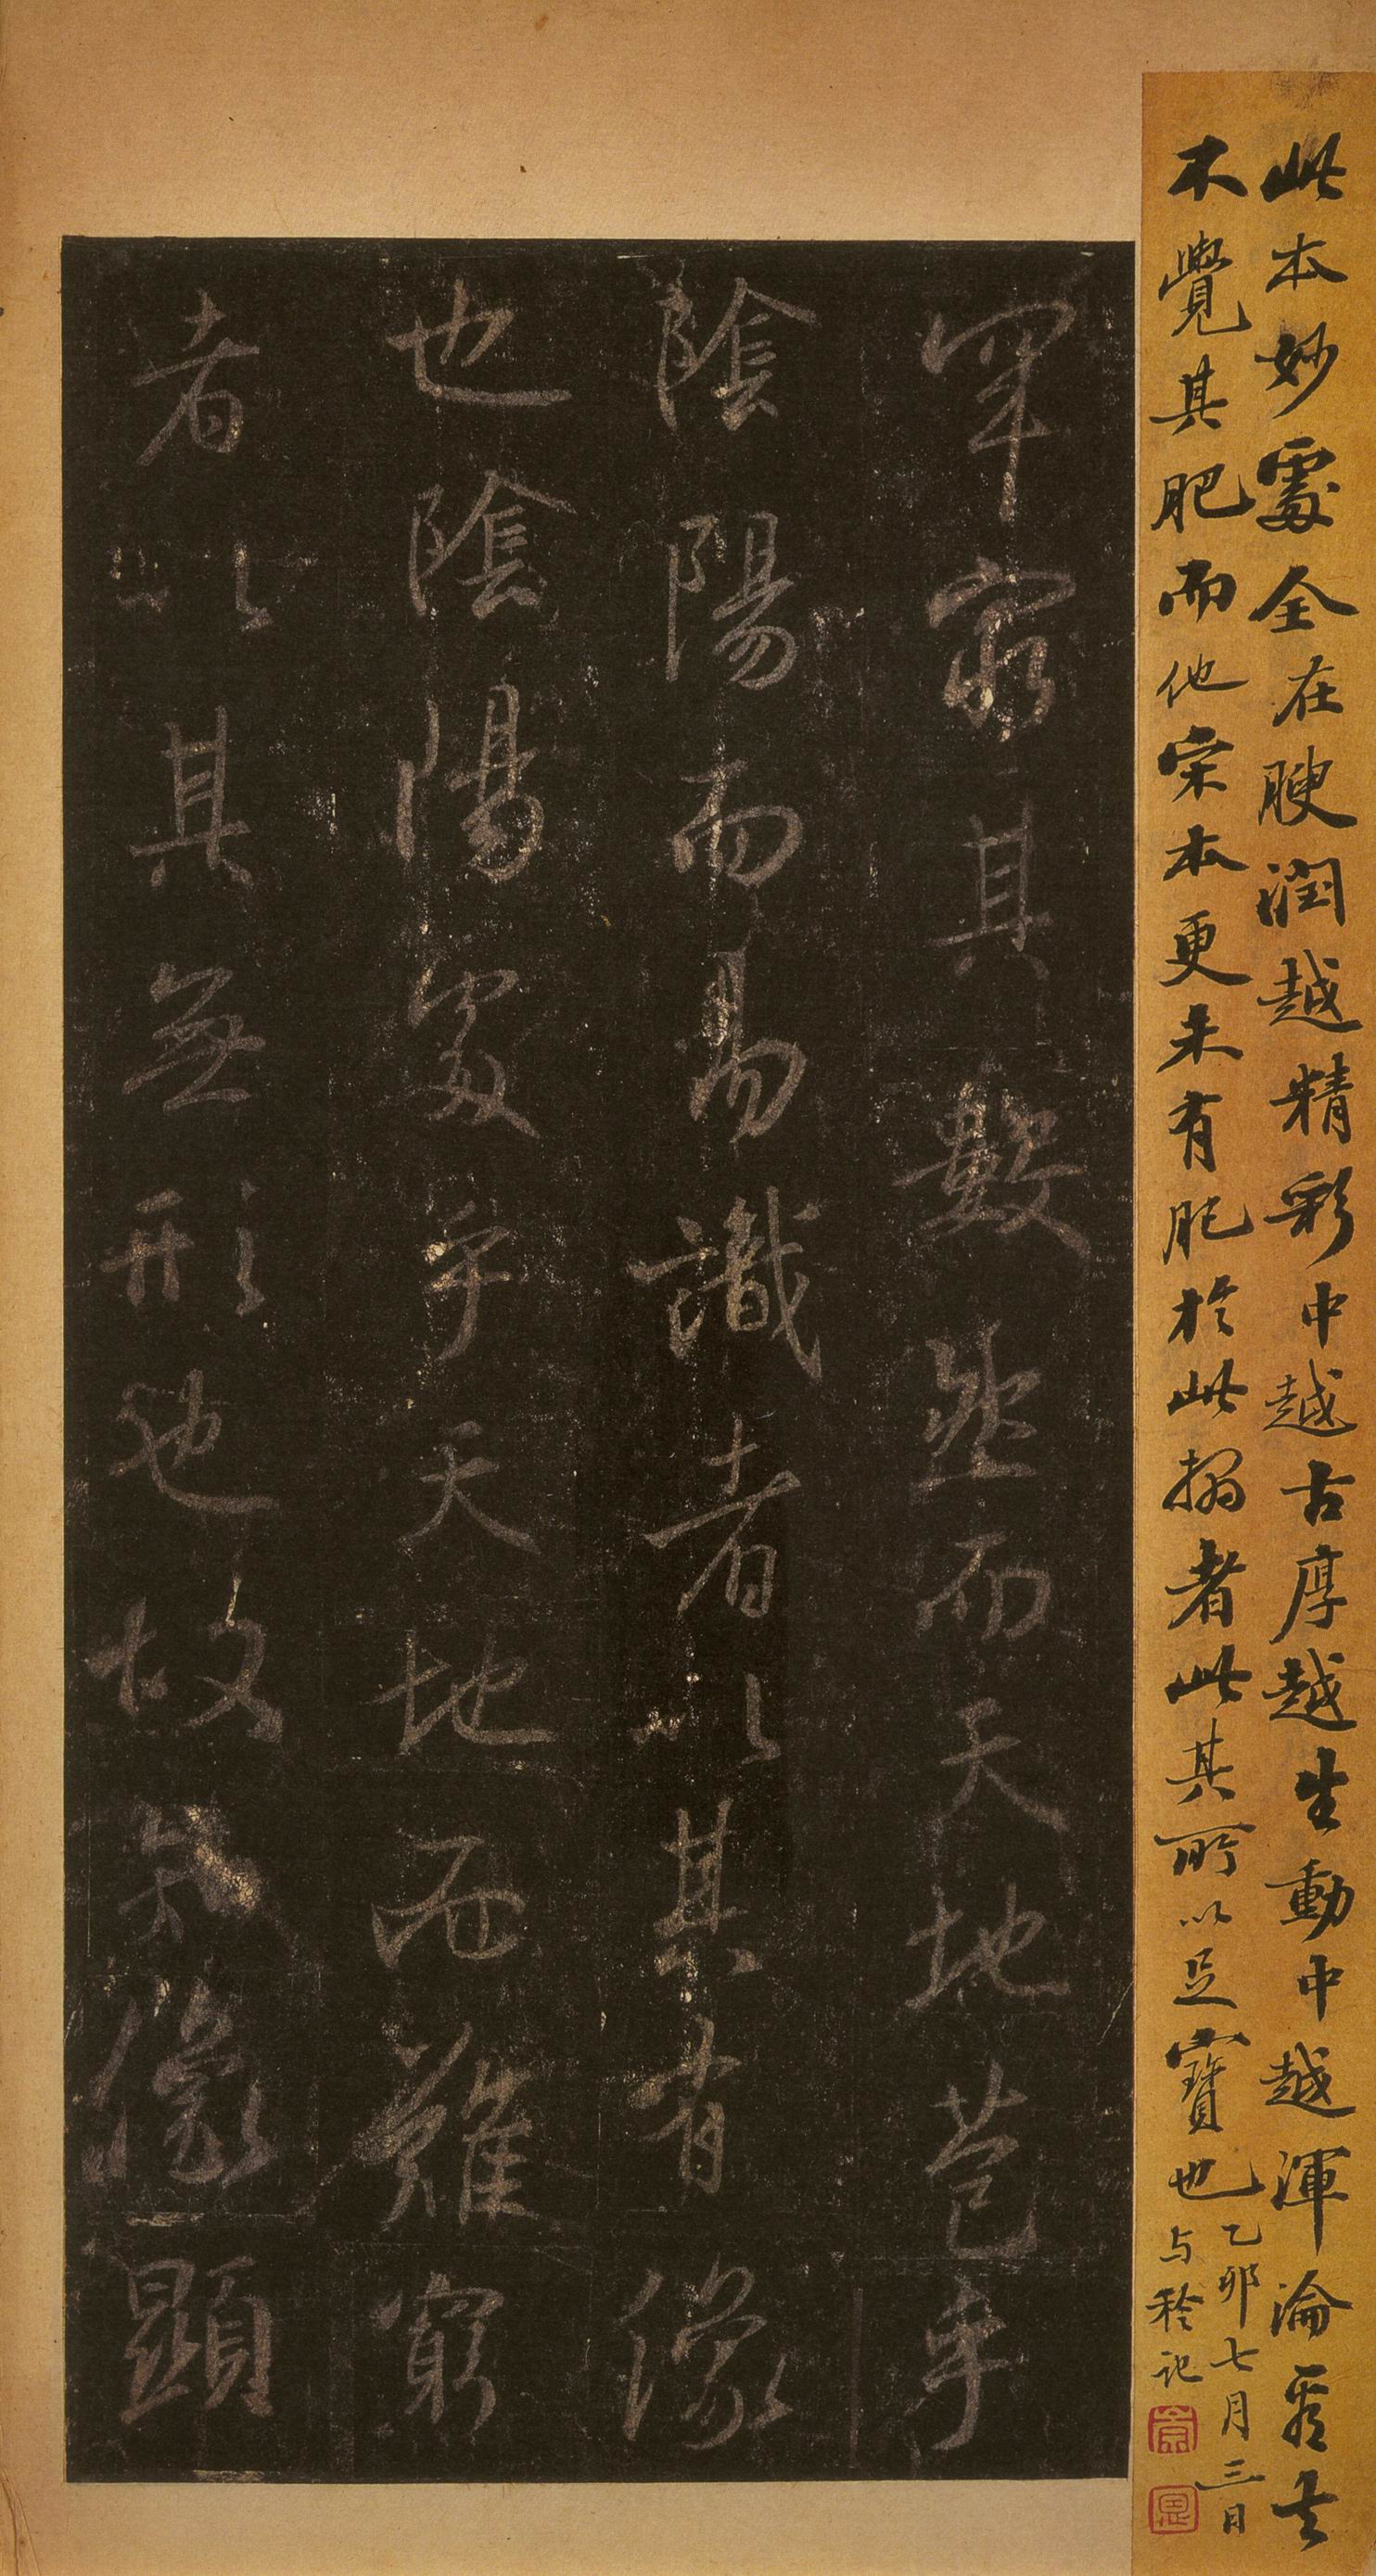 此本妙處全在腴润越精彩中越古厚越生動中越渾淪看去
不覺其肥而他宋本更未有肥於此搨者此其所以足寶也
乙卯七月三日
与稑記
罕窮其數然而天地苞乎
陰陽而易識者以其有像
也陰陽處乎天地而難窮
者以其無形也故知像顯